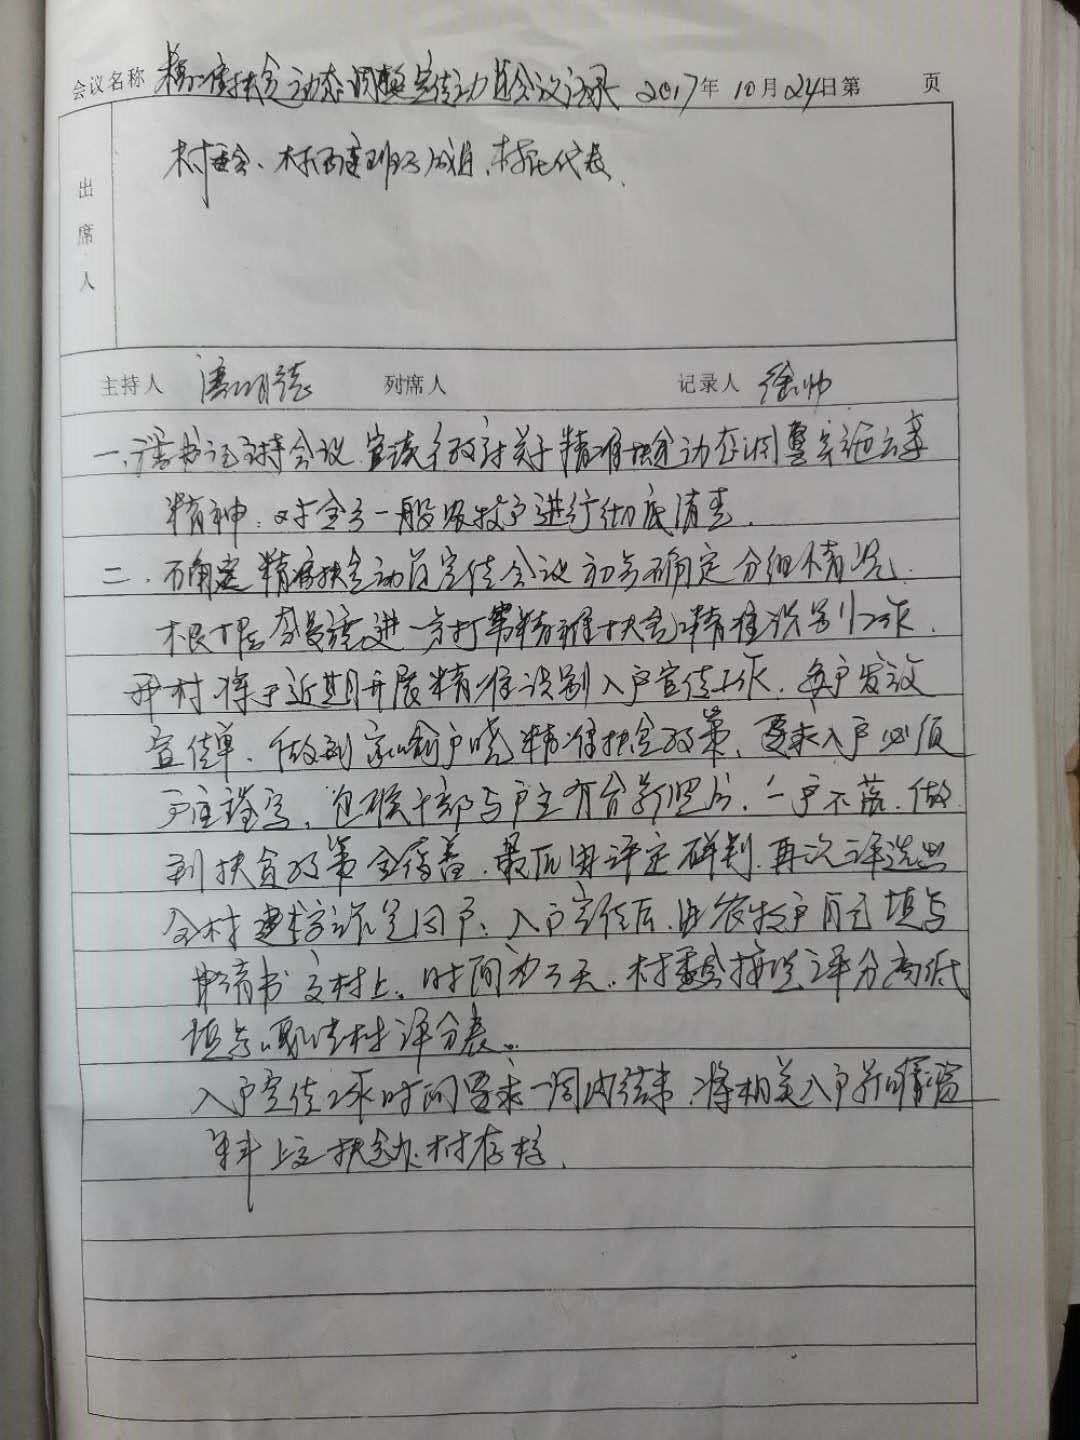 会议名称 精准扶贫动态调整宣传动员会议记录 2017年10月24日第 页
出席人
村委会、村两委班子成员、村民代表、
主持人 潘明德 列席人 记录人 徐帅
一、潘书记主持会议、宣读 政府关于精准扶贫动态调整实施方案
精神:对全乡一般农牧户进行彻底清查、
二、 确定精准扶贫动员宣传会议 确定分组情况、
根据 进一步打 精准扶贫 精准识别工作、
我村将于近期开展精准识别入户宣传工作、每户发放
宣传单、做到家喻户晓精准扶贫政策、要求入户必须
户主 写、包联干部与户主有合影照片、一户不落、做
到扶贫政策全覆盖、最后由评定研判、再次评选出
全村建档立 户、入户宣传后、由农牧户自己填写
申请书交村上、时间为三天、村委会按照评分高低
填写 村评分表。
入户宣传工作时间要求一周内结束、将相关入户影像资
料上交扶贫办、村存档、